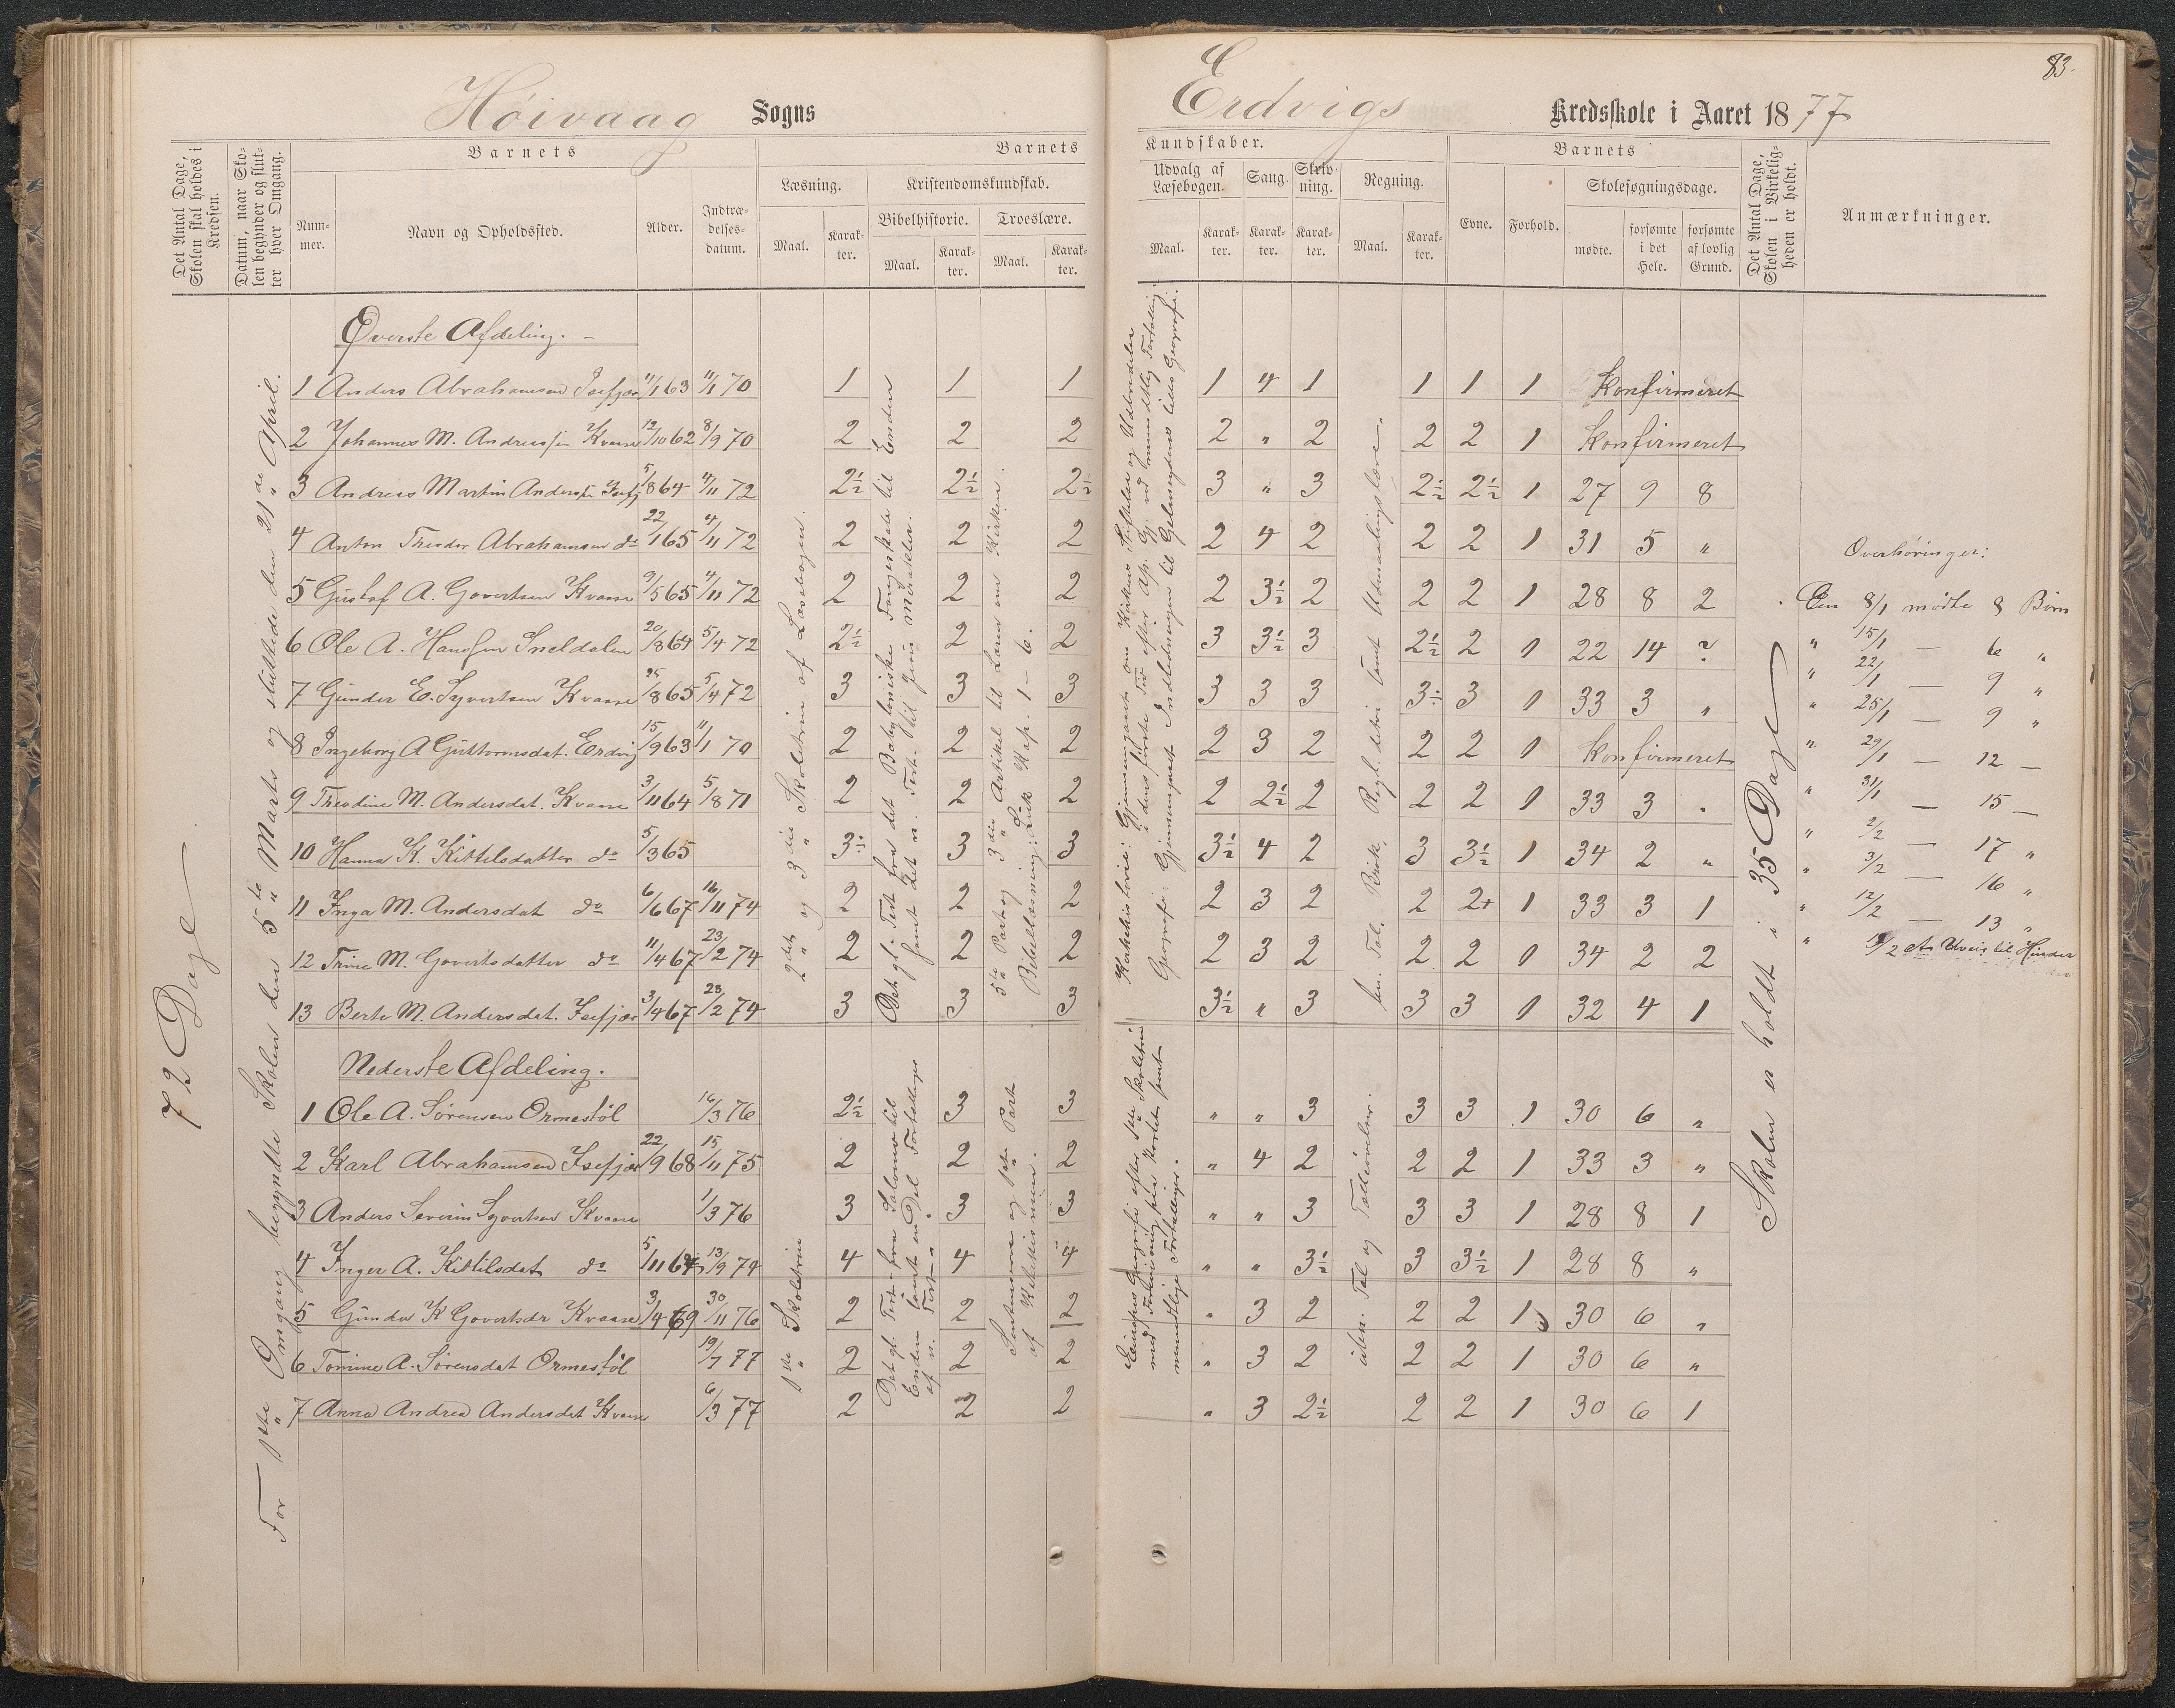 83.
Höivaag Sogns
Erdvigs Kredsskole i Aaret 1877
Det Antal Dage, Skolen skal holdes i Kredsen.
Datum, naar Skolen begynder og slutter hver Omgang.
Barnets
Nummer.
Navn og Opholdssted.
Alder.
Indtrædelsesdatum.
Barnets
Læsning.
Maal.
Karakter.
Kristendomskundskab.
Bibelhistorie.
Maal.
Karakter.
Troeslære.
Maal.
Karakter.
Kundskaber.
Udvalg af Læsebogen.
Maal.
Karakter.
Sang.
Karakter.
Skrivning.
Karakter.
Regning.
Maal.
Karakter.
Barnets
Evne.
Forhold.
Skolesøgningsdage.
mødte.
forsømte i det Hele.
forsømte af lovlig Grund.
Det Antal Dage, Skolen i Virkeligheden er holdt.
Anmærkninger.
72 Dage
For 1ste Omgang begyndte Skolen den 5te Marts og sluttede den 21de April.
Øverste Afdeling.
1 Anders Abrahamsen Isefjær 11/1 63 11/1 70 1 1 1 1 4 1 1 1 1 Konfirmeret
2 Johannes M. Andreassen Kvaase 12/10 62 8/9 70 2 2 2 2 " 2 2 2 1 Konfirmeret
3 Andreas Martin Anderssen Isefj 5/8 64 4/11 72 2½ 2½ 2½ 3 " 3 2½ 2½ 1 27 9 8
4 Anton Theodor Abrahamsen do 22/1 65 4/11 72 2 2 2 2 4 2 2 2 1 31 5 "
5 Gustaf A. Govertsen Kvaase 9/5 65 4/11 72 2 2 2 2 3½ 2 2 2 1 28 8 2
6 Ole A. Hanssen Sneldalen 20/8 64 5/4 72 2½ 2 2 3 3½ 3 2½ 2 1 22 14 ?
7 Gunder E. Syvertsen Kvaase 25/8 65 5/4 72 3 3 3 3 3 3 3÷ 3 1 33 3 "
8 Ingeborg A Guttormsdat. Erdvig 15/9 63 11/1 70 2 2 2 2 3 2 2 2 1 Konfirmeret
9 Theodine M. Andersdat. Kvaase 3/11 64 5/8 71 2 2 2 2 2½ 2 2 2 1 33 3 "
10 Hanna K. Kittilsdatter do 5/3 65 3÷ 3 3 3½ 4 2 3 3½ 1 34 2 "
11 Inga M. Andersdat do 6/6 67 16/11 74 2 2 2 2 3 2 2 2+ 1 33 3 1
12 Trine M. Govertsdatter do 11/4 67 23/2 74 2 2 2 2 3 2 2 2 1 34 2 2
13 Berte M. Andersdat. Isefjær 3/4 67 23/2 74 3 3 3 3½ " 3 3 3 1 32 4 1
Nederste Afdeling.
1 Ole A. Sörensen Ormestöl 16/3 76 2½ 3 3 " " 3 3 3 1 30 6 "
2 Karl Abrahamsen Isefjær 22/9 68 15/11 75 2 2 2 " 4 2 2 2 1 33 3 "
3 Anders Severin Syvertsen Kvaase 1/3 76 3 3 3 " " 3 3 3 1 28 8 1
4 Inger A. Kittilsdat do 5/11 67 13/9 74 4 4 4 " " 3½ 3 3½ 1 28 8 "
5 Gunder K Govertsdr Kvaase 3/4 69 30/11 76 2 2 2 " 3 2 2 2 1 30 6 "
6 Tomine A. Sörensdat Ormestöl 19/7 77 2 2 2 " 3 2 2 2 1 30 6 "
7 Anna Andrea Andersdat Kvaase 6/3 77 2 2 2 " 3 2½ 2 2 1 30 6 1
2det og 3die Skoletrin af Læsebogen.
Det gl. Test. fra det Babyloniske Fangeskab til Enden samt det n. Test. til Jesu Mirakler.
5te Part og 3die Artikel til Læren om Kirken.
Bibellæsning: Luk Kap. 1-6.
Geografi: Indledningen til
Regl. detri samt Udmaalingslære.
1ste Skoletrin
Det gl. Test. fra Salomo til Enden samt en Del Fortællinger af n. Test.
1ste Part af Katekismen.
mundtlige Fortællinger.
Tal og Talöövelser.
Skolen er holdt i 35 Dage
Overhöringer:
Den 8/1 mödte 8 Börn
" 15/1 — 6 "
" 22/1 — 9 "
" 25/1 — 9 "
" 29/1 — 12 —
" 31/1 — 15 —
" 2/2 — 17 "
" 3/2 — 16 "
" 12/2 — 13 "
" Uveir til Hinder